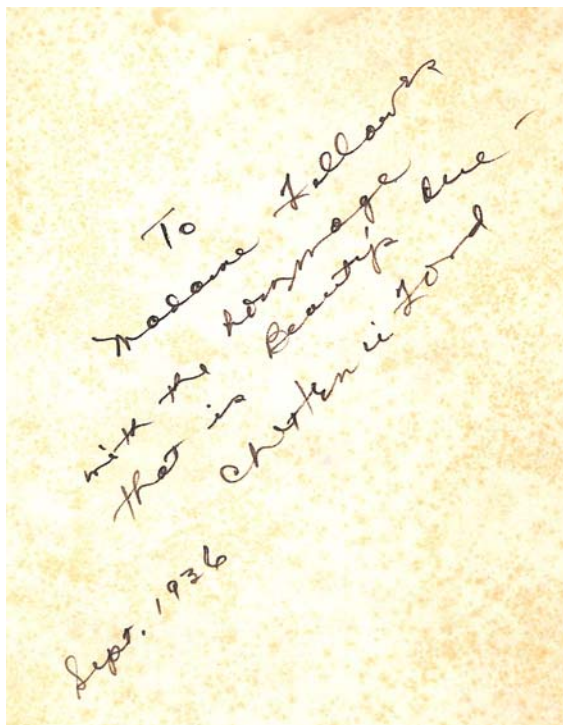 To
Madame Fellowes
with the hommage
that is Beauty's due -
Ford
Sept. 1936